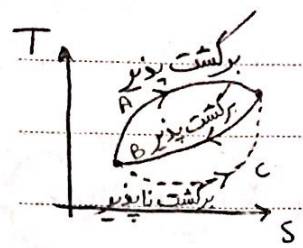 T
برگشت پذیر
A
برگشت پذیر
B
C
برگشت ناپذیر
S